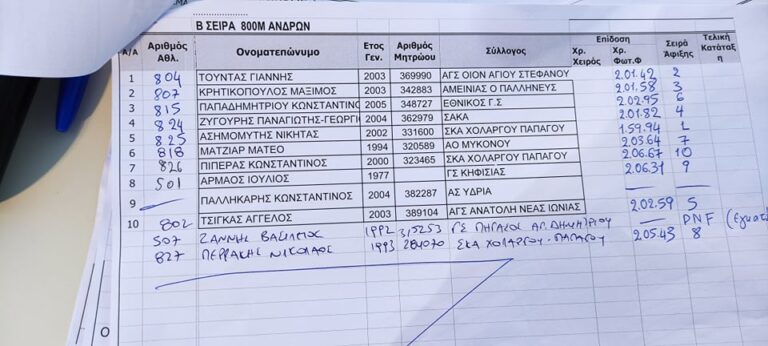 Β ΣΕΙΡΑ 800Μ ΑΝΔΡΩΝ
Α/Α Αριθμός Αθλ. Ονοματεπώνυμο Ετος Γεν. Αριθμός Μητρώου Σύλλογος Επίδοση Χρ. Χειρός Χρ. Φωτ.Φ Σειρά Άφιξης Τελική Κατάταξη
1 804 ΤΟΥΝΤΑΣ ΓΙΑΝΝΗΣ 2003 369990 ΑΓΣ ΟΙΟΝ ΑΓΙΟΥ ΣΤΕΦΑΝΟΥ 2.01.42 2
2 807 ΚΡΗΤΙΚΟΠΟΥΛΟΣ ΜΑΞΙΜΟΣ 2003 342883 ΑΜΕΙΝΙΑΣ Ο ΠΑΛΛΗΝΕΥΣ 2.01.58 3
3 815 ΠΑΠΑΔΗΜΗΤΡΙΟΥ ΚΩΝΣΤΑΝΤΙΝΟ 2005 348727 ΕΘΝΙΚΟΣ Γ.Σ 2.02.95 6
4 824 ΖΥΓΟΥΡΗΣ ΠΑΝΑΓΙΩΤΗΣ-ΓΕΩΡΓΙ 2004 362979 ΣΑΚΑ 2.01.82 4
5 825 ΑΣΗΜΟΜΥΤΗΣ ΝΙΚΗΤΑΣ 2002 331600 ΣΚΑ ΧΟΛΑΡΓΟΥ ΠΑΠΑΓΟΥ 1.59.94 1
6 818 ΜΑΤΖΙΑΡ ΜΑΤΕΟ 1994 320589 ΑΟ ΜΥΚΟΝΟΥ 2.03.64 7
7 826 ΠΙΠΕΡΑΣ ΚΩΝΣΤΑΝΤΙΝΟΣ 2000 323465 ΣΚΑ ΧΟΛΑΡΓΟΥ ΠΑΠΑΓΟΥ 2.06.67 10
8 501 ΑΡΜΑΟΣ ΙΟΥΛΙΟΣ 1977 ΓΣ ΚΗΦΙΣΙΑΣ 2.06.31 9
9 ΠΑΛΛΗΚΑΡΗΣ ΚΩΝΣΤΑΝΤΙΝΟΣ 2004 382287 ΑΣ ΥΔΡΙΑ
10 802 ΤΣΙΓΚΑΣ ΑΓΓΕΛΟΣ 2003 389104 ΑΓΣ ΑΝΑΤΟΛΗ ΝΕΑΣ ΙΩΝΙΑΣ 2.02.59 5
507 ΖΑΝΝΗΣ ΒΑΣΙΛΕΙΟΣ 1992 315253 ΓΣ ΠΗΓΑΣΟΣ ΑΓ. ΔΗΜΗΤΡΙΟΥ DNF
827 ΠΕΡΡΑΚΗΣ ΝΙΚΟΛΑΟΣ 1993 284070 ΣΚΑ ΧΟΛΑΡΓΟΥ-ΠΑΠΑΓΟΥ 2.05.43 8